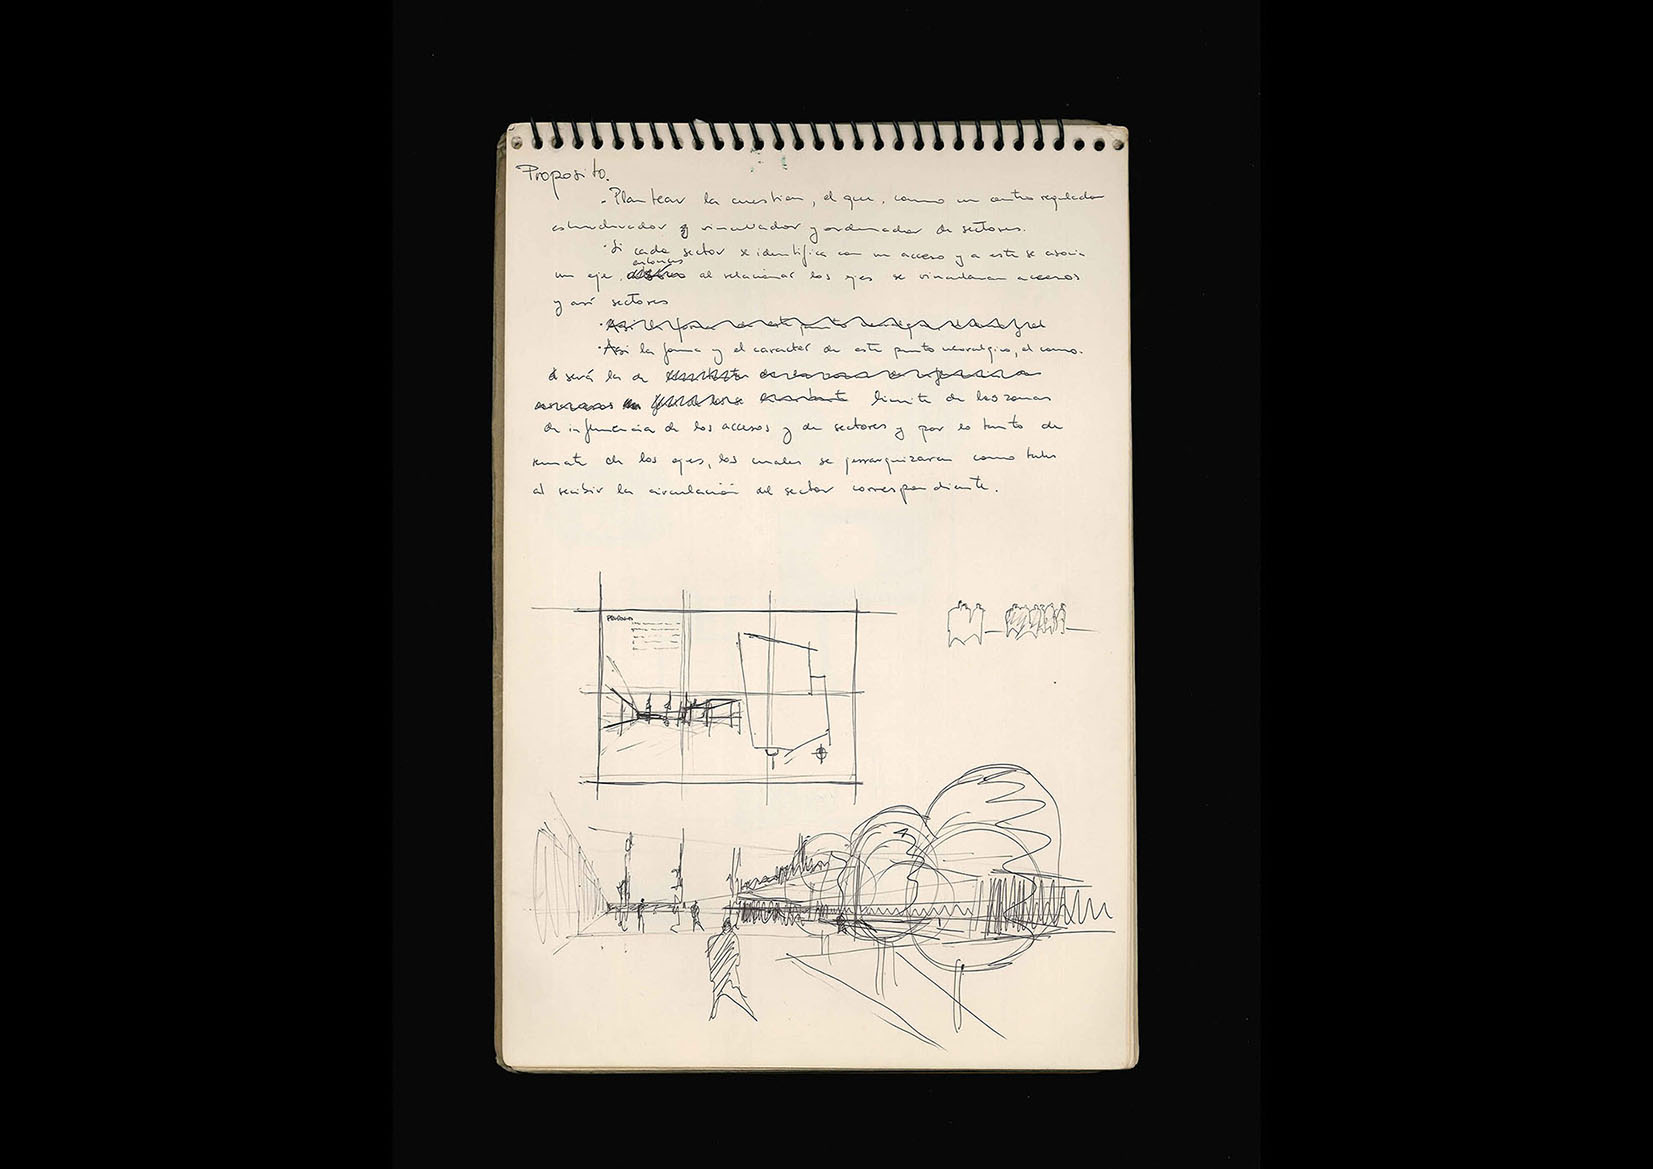 Proposito.
. Plantear la cuestion, el que, como un centro regulador
estructurador y vinculador y ordenador de sectores.
· Si cada sector se identifica con un acceso y a este se asocia
entonces
un eje, al relacionar los ejes se vincularan accesos
y así sectores
· Así la forma y el caracter de este punto neuralgico, el como.
será la de
limite de las zonas
de influencia de los accesos y de sectores y por lo tanto de
remate de los ejes, los cuales se jerarquizaran como tales
al recibir la circulación del sector correspondiente.